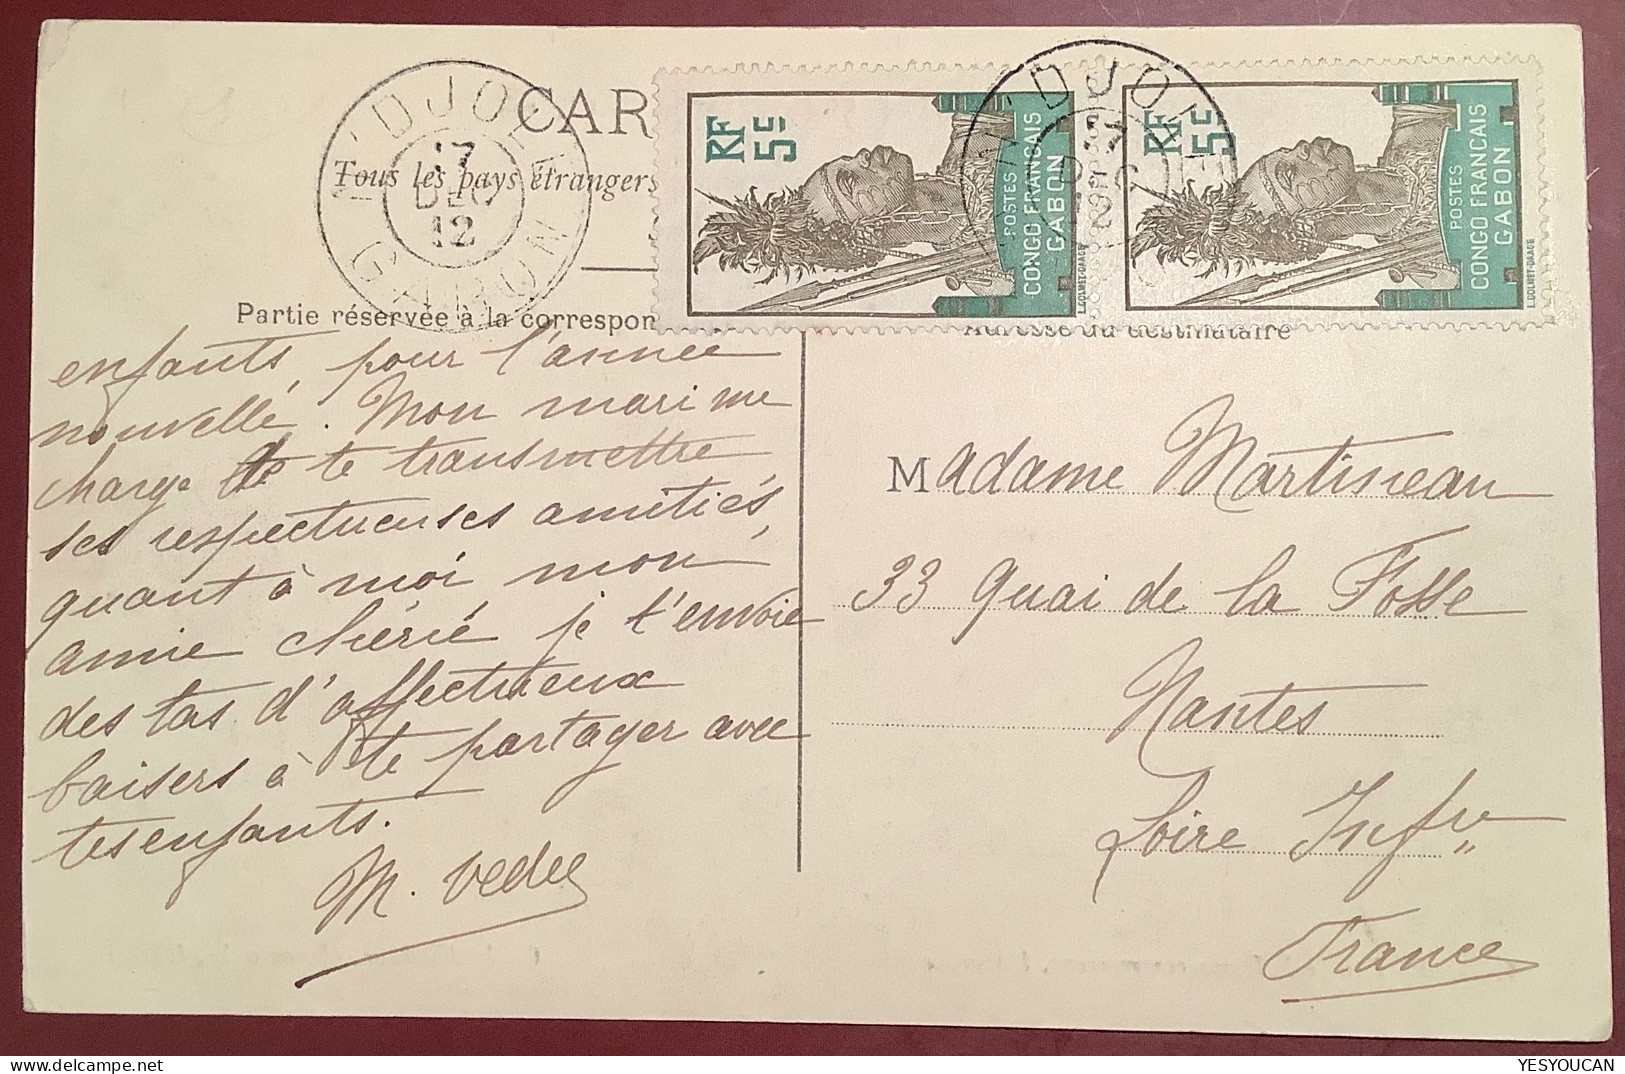 N'DJOLÉ
17
DEC
12
GABON
CAR
Tous les pays étrangers
RF 5c
POSTES
CONGO FRANÇAIS
GABON
L.COLMET-DAAGE
N'DJOLÉ
17
DEC
12
RF 5c
POSTES
CONGO FRANÇAIS
GABON
L.COLMET-DAAGE
Partie réservée à la correspon
Adresse du destinataire
enfants, pour l'année
nouvelle. Mon mari me
charge de te transmettre
ses respectueuses amitiés,
quant à moi mon
amie chérie je t'envoie
des tas d'affectueux
baisers à te partager avec
tes enfants.
M. Vedel
Madame Martineau
33 Quai de la Fosse
Nantes
Loire Infre
France
YESYOUCAN